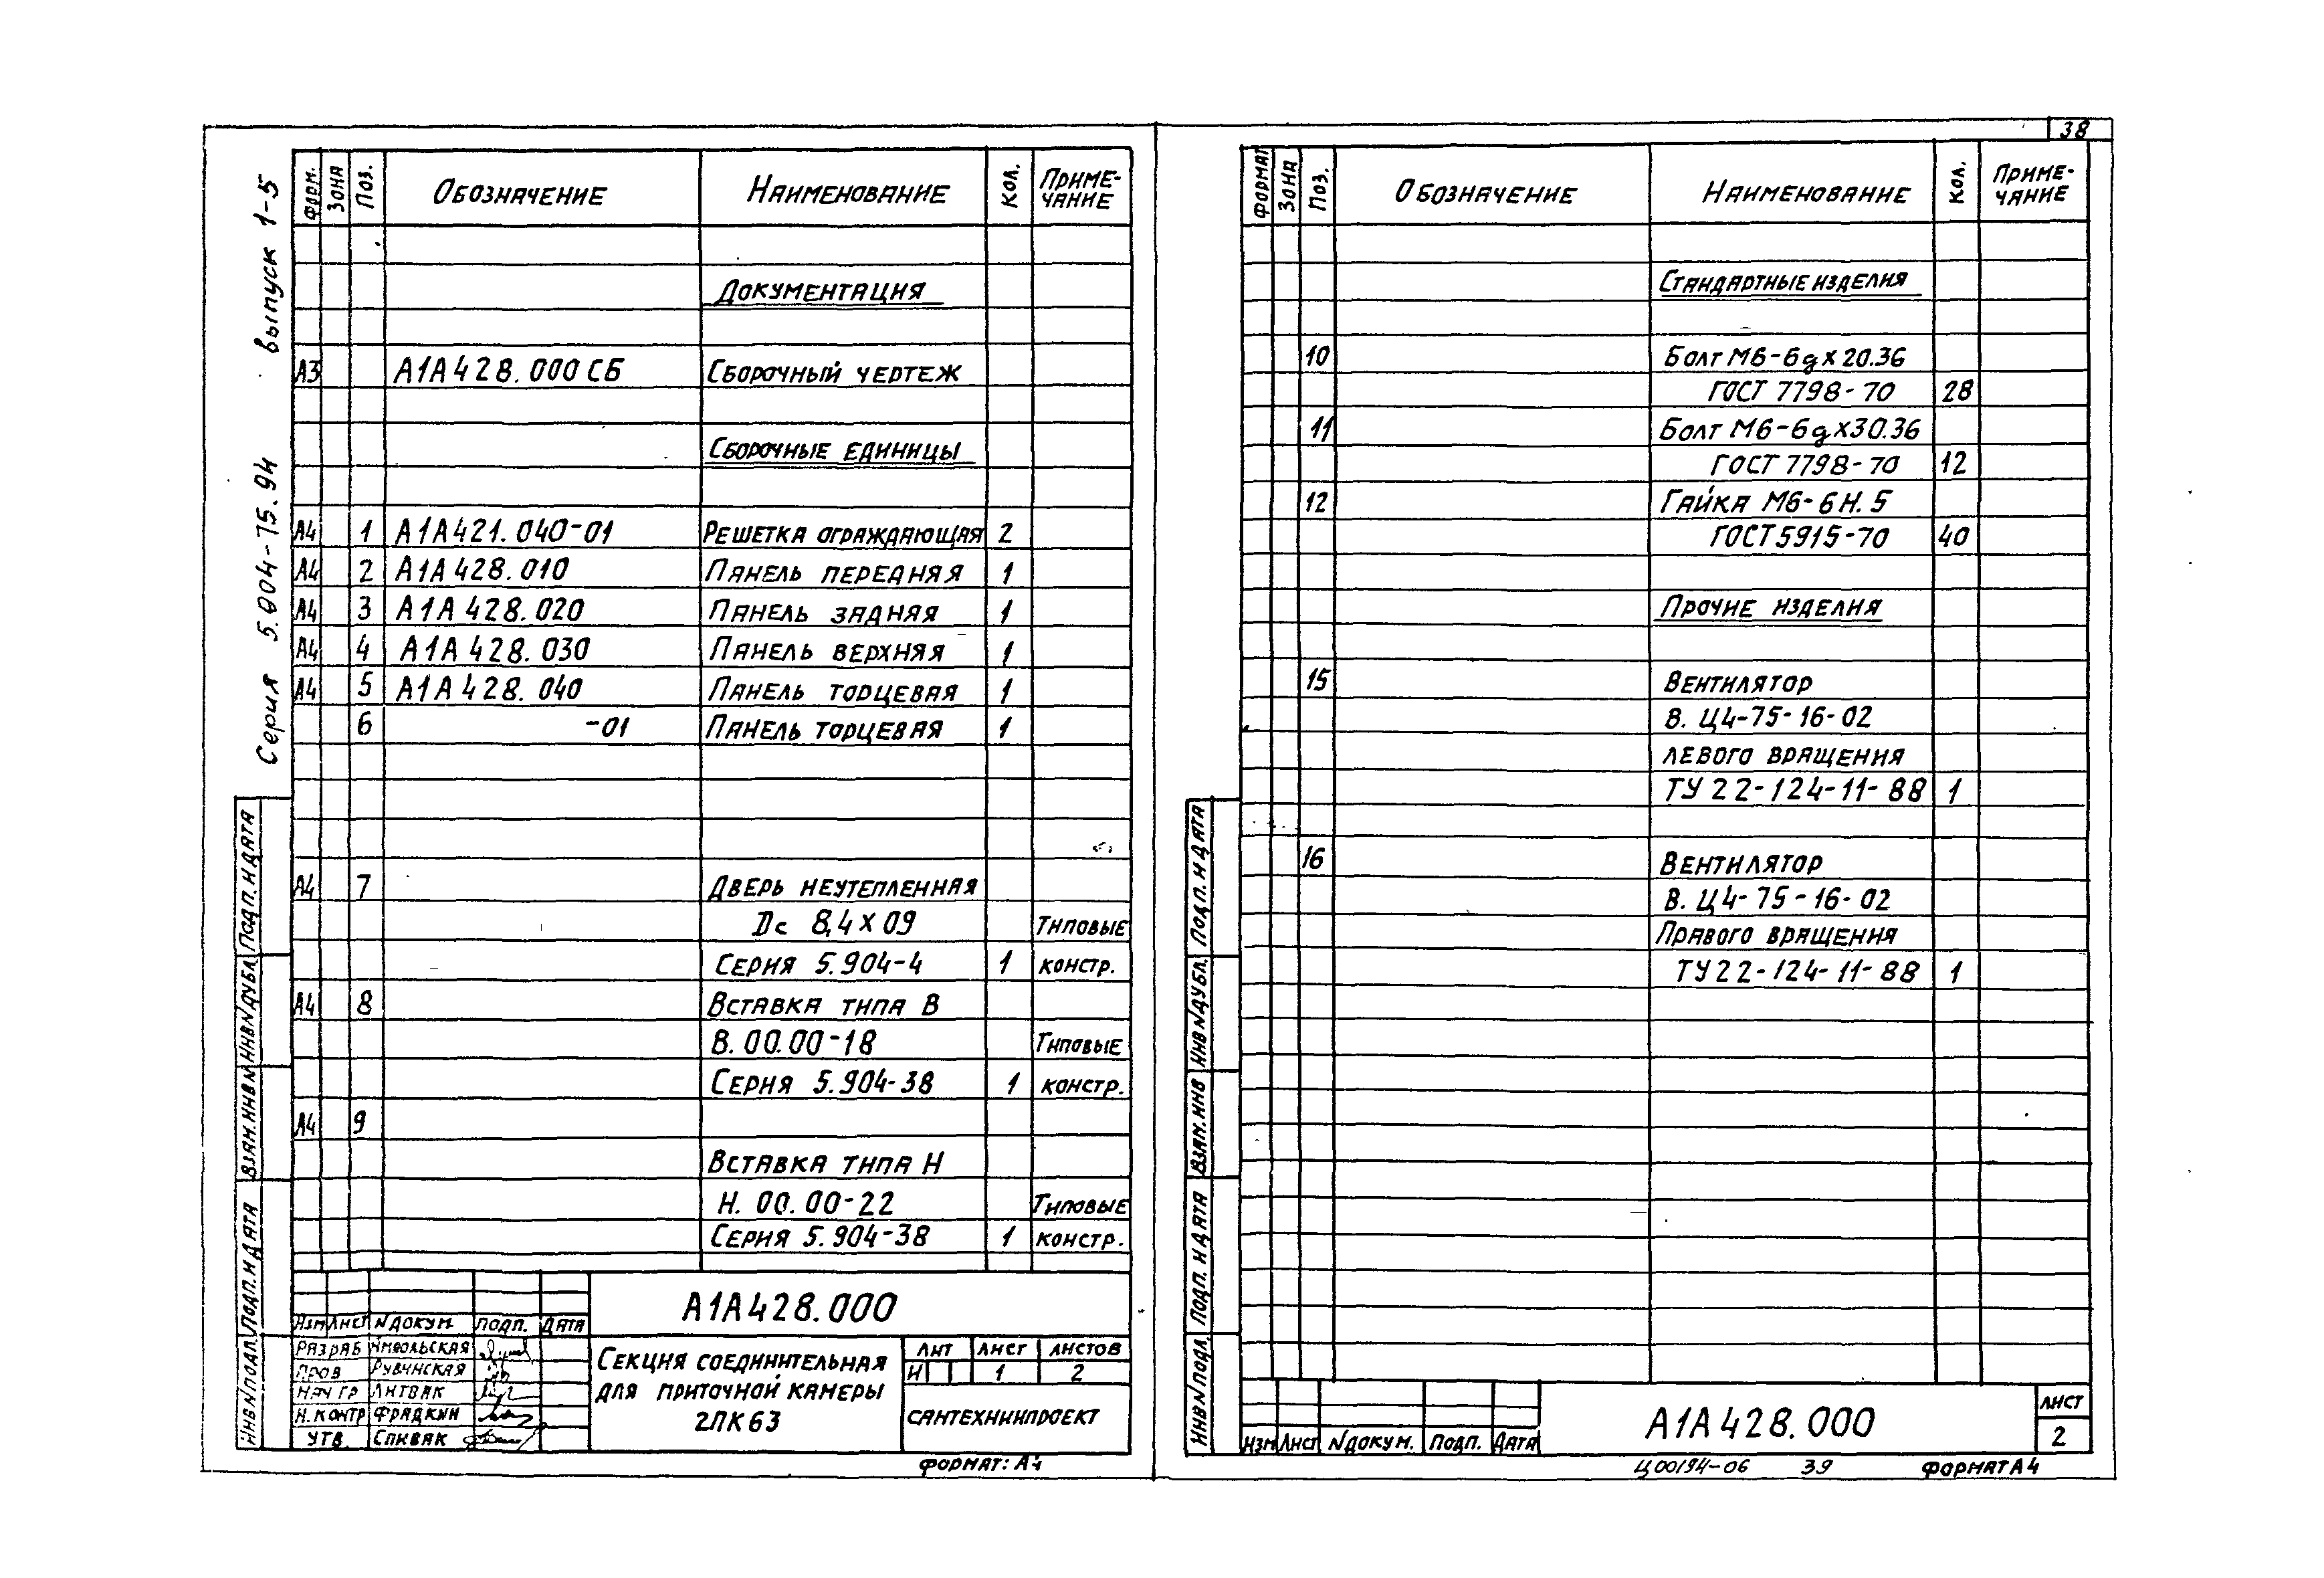 38
Серия 5.904-75.94 выпуск 1-5
Форм. Зона Поз. Обозначение Наименование Кол. Приме-
чание
Документация
А3 А1А428.000 СБ Сборочный чертеж
Сборочные единицы
А4 1 А1А421.040-01 Решетка ограждающая 2
А4 2 А1А428.010 Панель передняя 1
А4 3 А1А428.020 Панель задняя 1
А4 4 А1А428.030 Панель верхняя 1
А4 5 А1А428.040 Панель торцевая 1
6 -01 Панель торцевая 1
А4 7 Дверь неутепленная
Dс 8,4х09 Типовые
Серия 5.904-4 1 констр.
А4 8 Вставка типа В
В.00.00-18 Типовые
Серия 5.904-38 1 констр.
А4 9
Вставка типа Н
Н.00.00-22 Типовые
Серия 5.904-38 1 констр.
Инв N подл. Подп. и дата Взам. инв N Инв N дубл. Подп. и дата
А1А428.000
Изм Лист N докум. Подп. Дата
Разраб
Пров Рувинская
Нач гр Литвак
Н.контр Фрадкин
Утв. Спивак
Секция соединительная
для приточной камеры
2ПК63
Лит Лист Листов
И 1 2
Сантехниипроект
Формат: А4
Формат Зона Поз. Обозначение Наименование Кол. Приме-
чание
Стандартные изделия
10 Болт М6-6gх20.36
ГОСТ 7798-70 28
11 Болт М6-6gх30.36
ГОСТ 7798-70 12
12 Гайка М6-6Н.5
ГОСТ 5915-70 40
Прочие изделия
15 Вентилятор
В.Ц4-75-16-02
левого вращения
ТУ 22-124-11-88 1
16 Вентилятор
В.Ц4-75-16-02
Правого вращения
ТУ22-124-11-88 1
Инв N подл. Подп. и дата Взам. инв Инв N дубл. Подп. и дата
Изм Лист N докум. Подп. Дата
А1А428.000
Лист
2
Ц00194-06 39 Формат А4